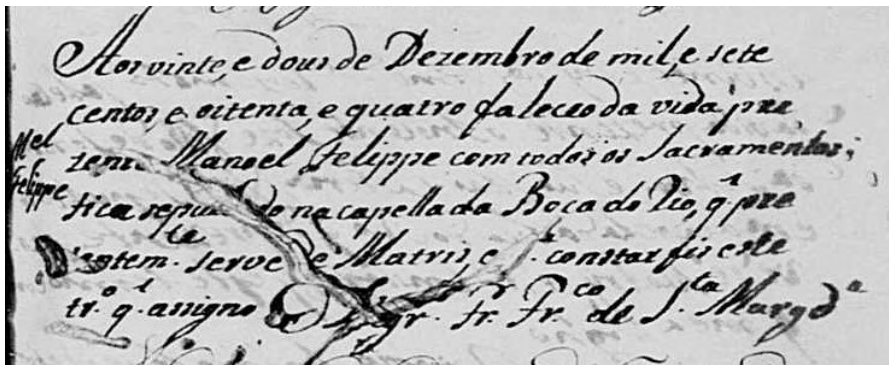 Aos vinte, e dous de Dezembro de mil, e sete
centos, e oitenta, e quatro faleceo da vida pre
zente Manoel Felippe com todos os Sacramentos;
fica sepultado na capella da Boca do Rio, q. pre
sentem.te serve de Matris, e constar fis este
tr.o q. assigno Fr. Fr.co de S.ta Marg.da
Mel
Felippe